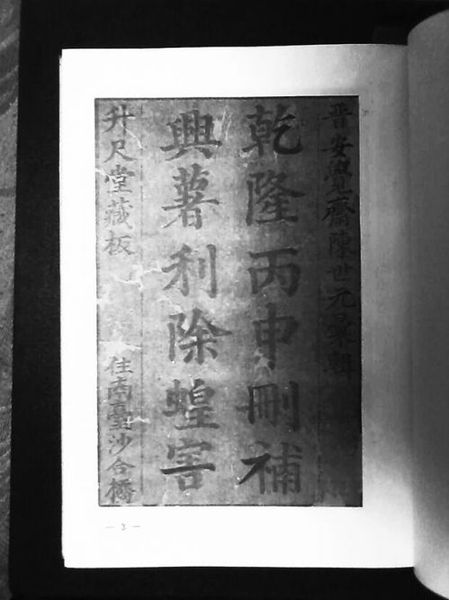 晋安覺齋陳世元彙輯
乾隆丙申刪補
興薯利除蝗害
升尺堂藏板
住南臺沙合橋
— 3 —